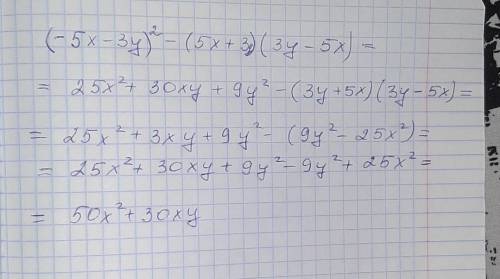 (-5x-3y)²-(5x+3y)(3y-5x)=
= 25x²+30xy+9y²-(3y+5x)(3y-5x)=
= 25x²+3xy+9y²-(9y²-25x²)=
= 25x²+30xy+9y²-9y²+25x²=
= 50x²+30xy